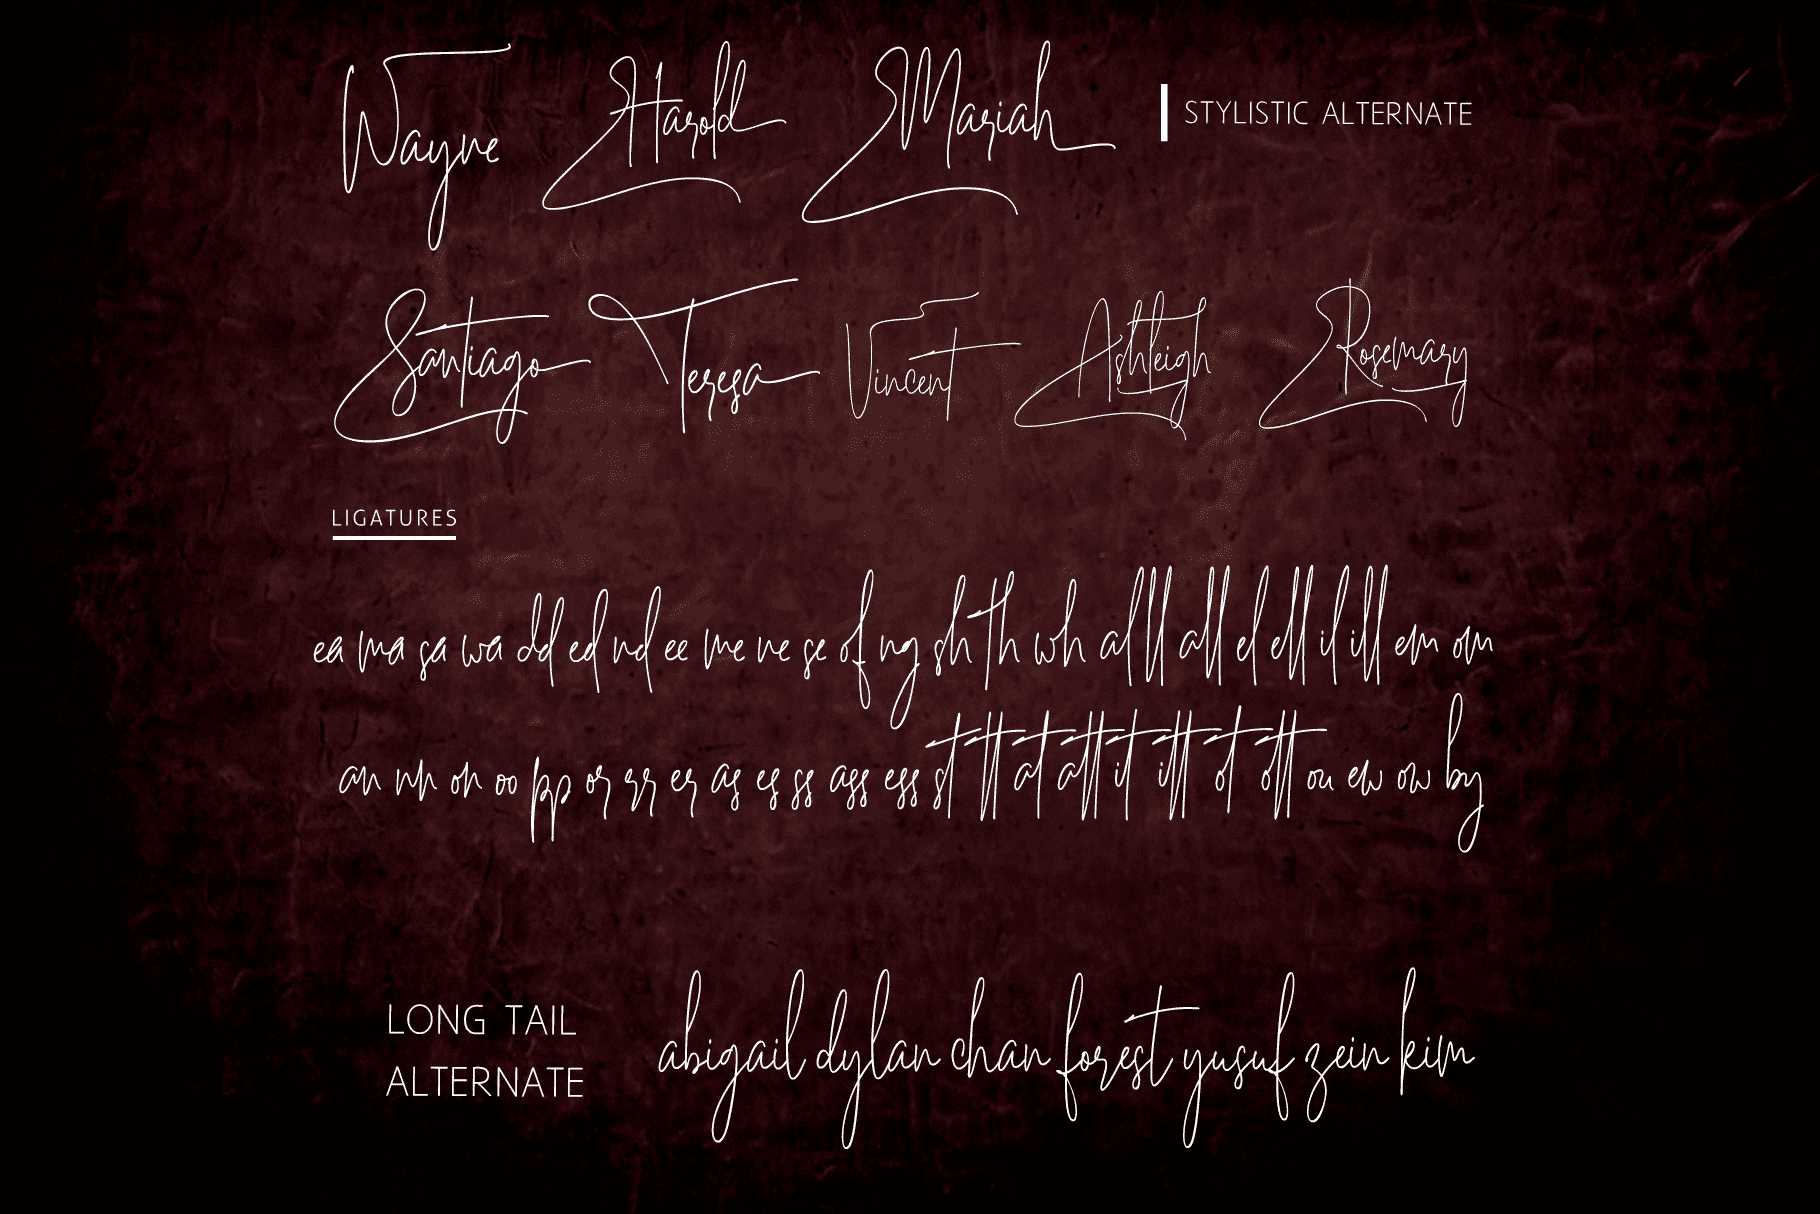 Wayne Harold Mariah STYLISTIC ALTERNATE
Santiago Teresa Vincent Ashleigh Rosemary
LIGATURES
ea ma sa wa dd ed nd ee me ne se of ng sh th wh al ll all el ell il ill em om
an nn on oo pp or rr er as es ss ass ess st tt at att it itt ot ott ou ew ow by
LONG TAIL
ALTERNATE
abigail dylan chan forest yusuf zein kim